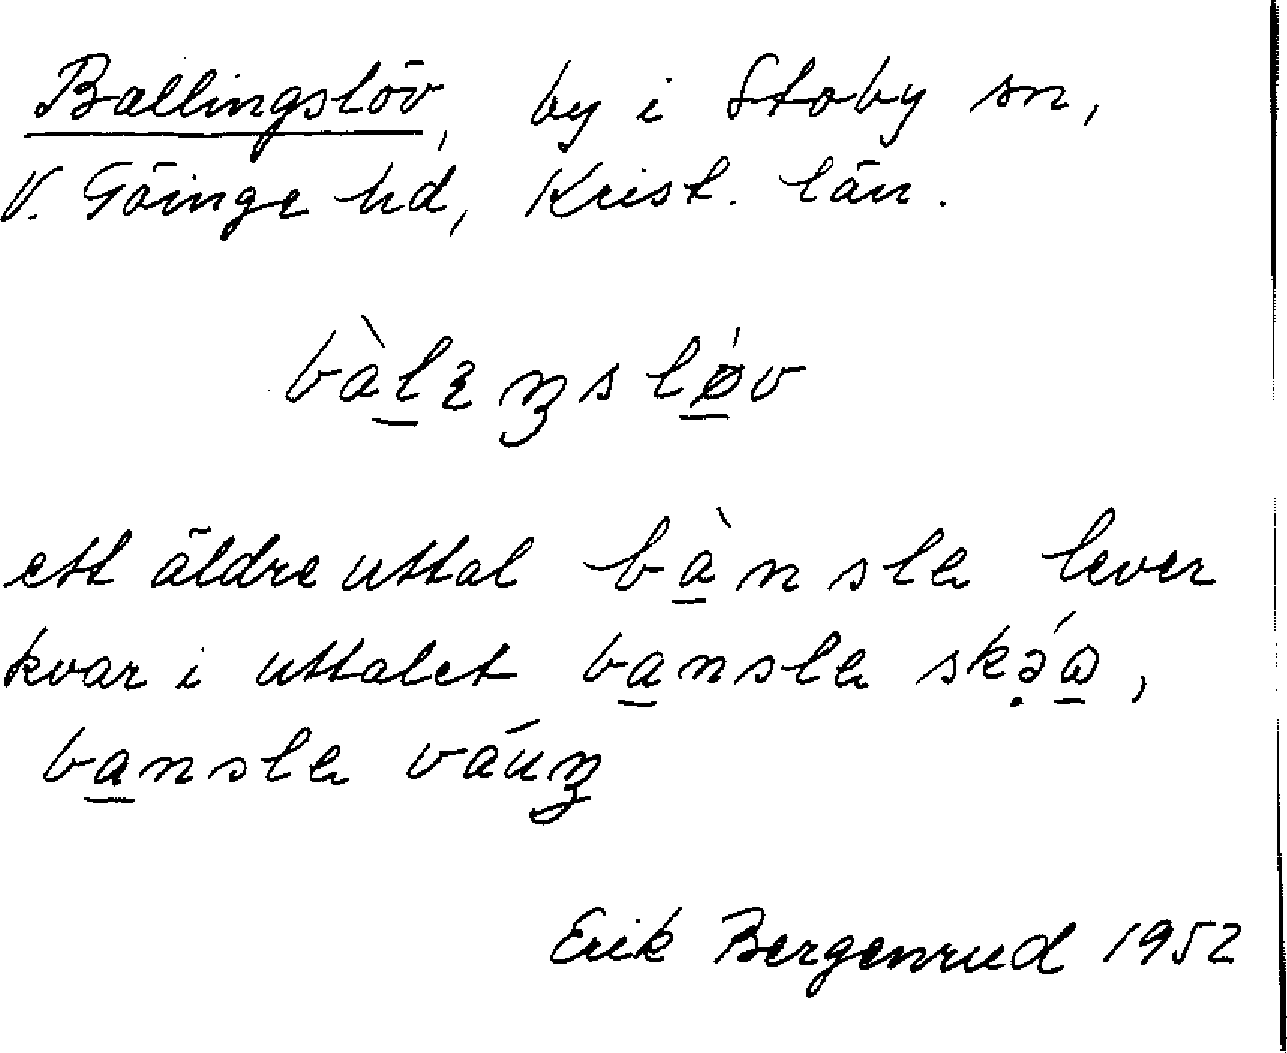 Ballingslöv, by i Stoby sn,
V. Göinge hd, Krist. län.
bàlꞮŋsløv́
ett äldre uttal bànsla lever
kvar i uttalet bansla skə́ɷ,
bansla váuŋ
Erik Bergenrud 1952